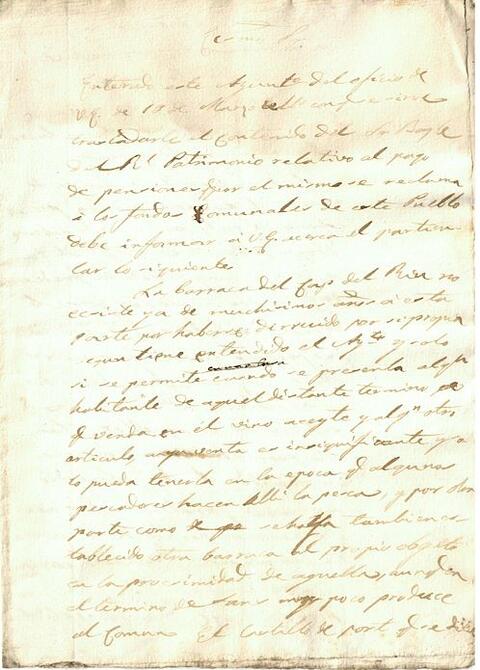 Enterado este Ayunto del oficio de
V.S. de 18 de Marzo ult con q se sirve
trasladarle el contenido del Sr Bayle
del Rl Patrimonio relativo al pago
de pensiones q por el mismo se reclama
a los fondos Comunales de este Pueblo
debe informar a V.S. acerca el particu
lar lo siguiente
La barraca del Cap del Riu no
ecsiste ya de muchisimos años a esta
parte por haberse derruido por si propia
segun tiene entendido el Ayto y solo
si se permite cuando se presenta algun
habitante de aquel distante termino
q venda en el vino aceyte y algn otro
articulo, cuya venta es insignificante y so
lo pueda tenerla en la epoca q algunos
pescadores hacen alli la pesca, y por otra
parte como se halla tambien es
tablecido otra barraca al propio objeto
en la procsimidad de aquella, aunq en
el termino de Sans muy poco produce
al Comun. El Castillo de port q se dice